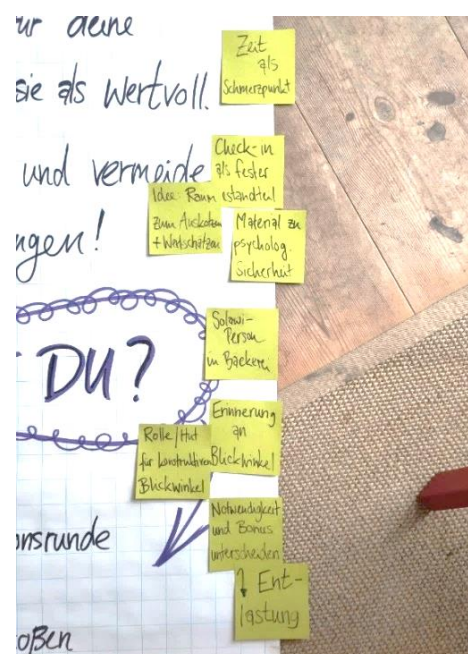 ür deine
sie als Wertvoll.
und vermeide
ngen!
DU?
onsrunde
oßen
Zeit
als
Schmerzpunkt
Check-in
als fester
estandteil
Idee: Raum
zum Auskotzen
+ Wertschätzen
Material zu
psycholog.
Sicherheit
Solawi-
Person
in Bäckerei
Erinnerung
an
Blickwinkel
Rolle/Hut
für konstruktiven
Blickwinkel
Notwendigkeit
und Bonus
unterscheiden
↓ Ent-
lastung